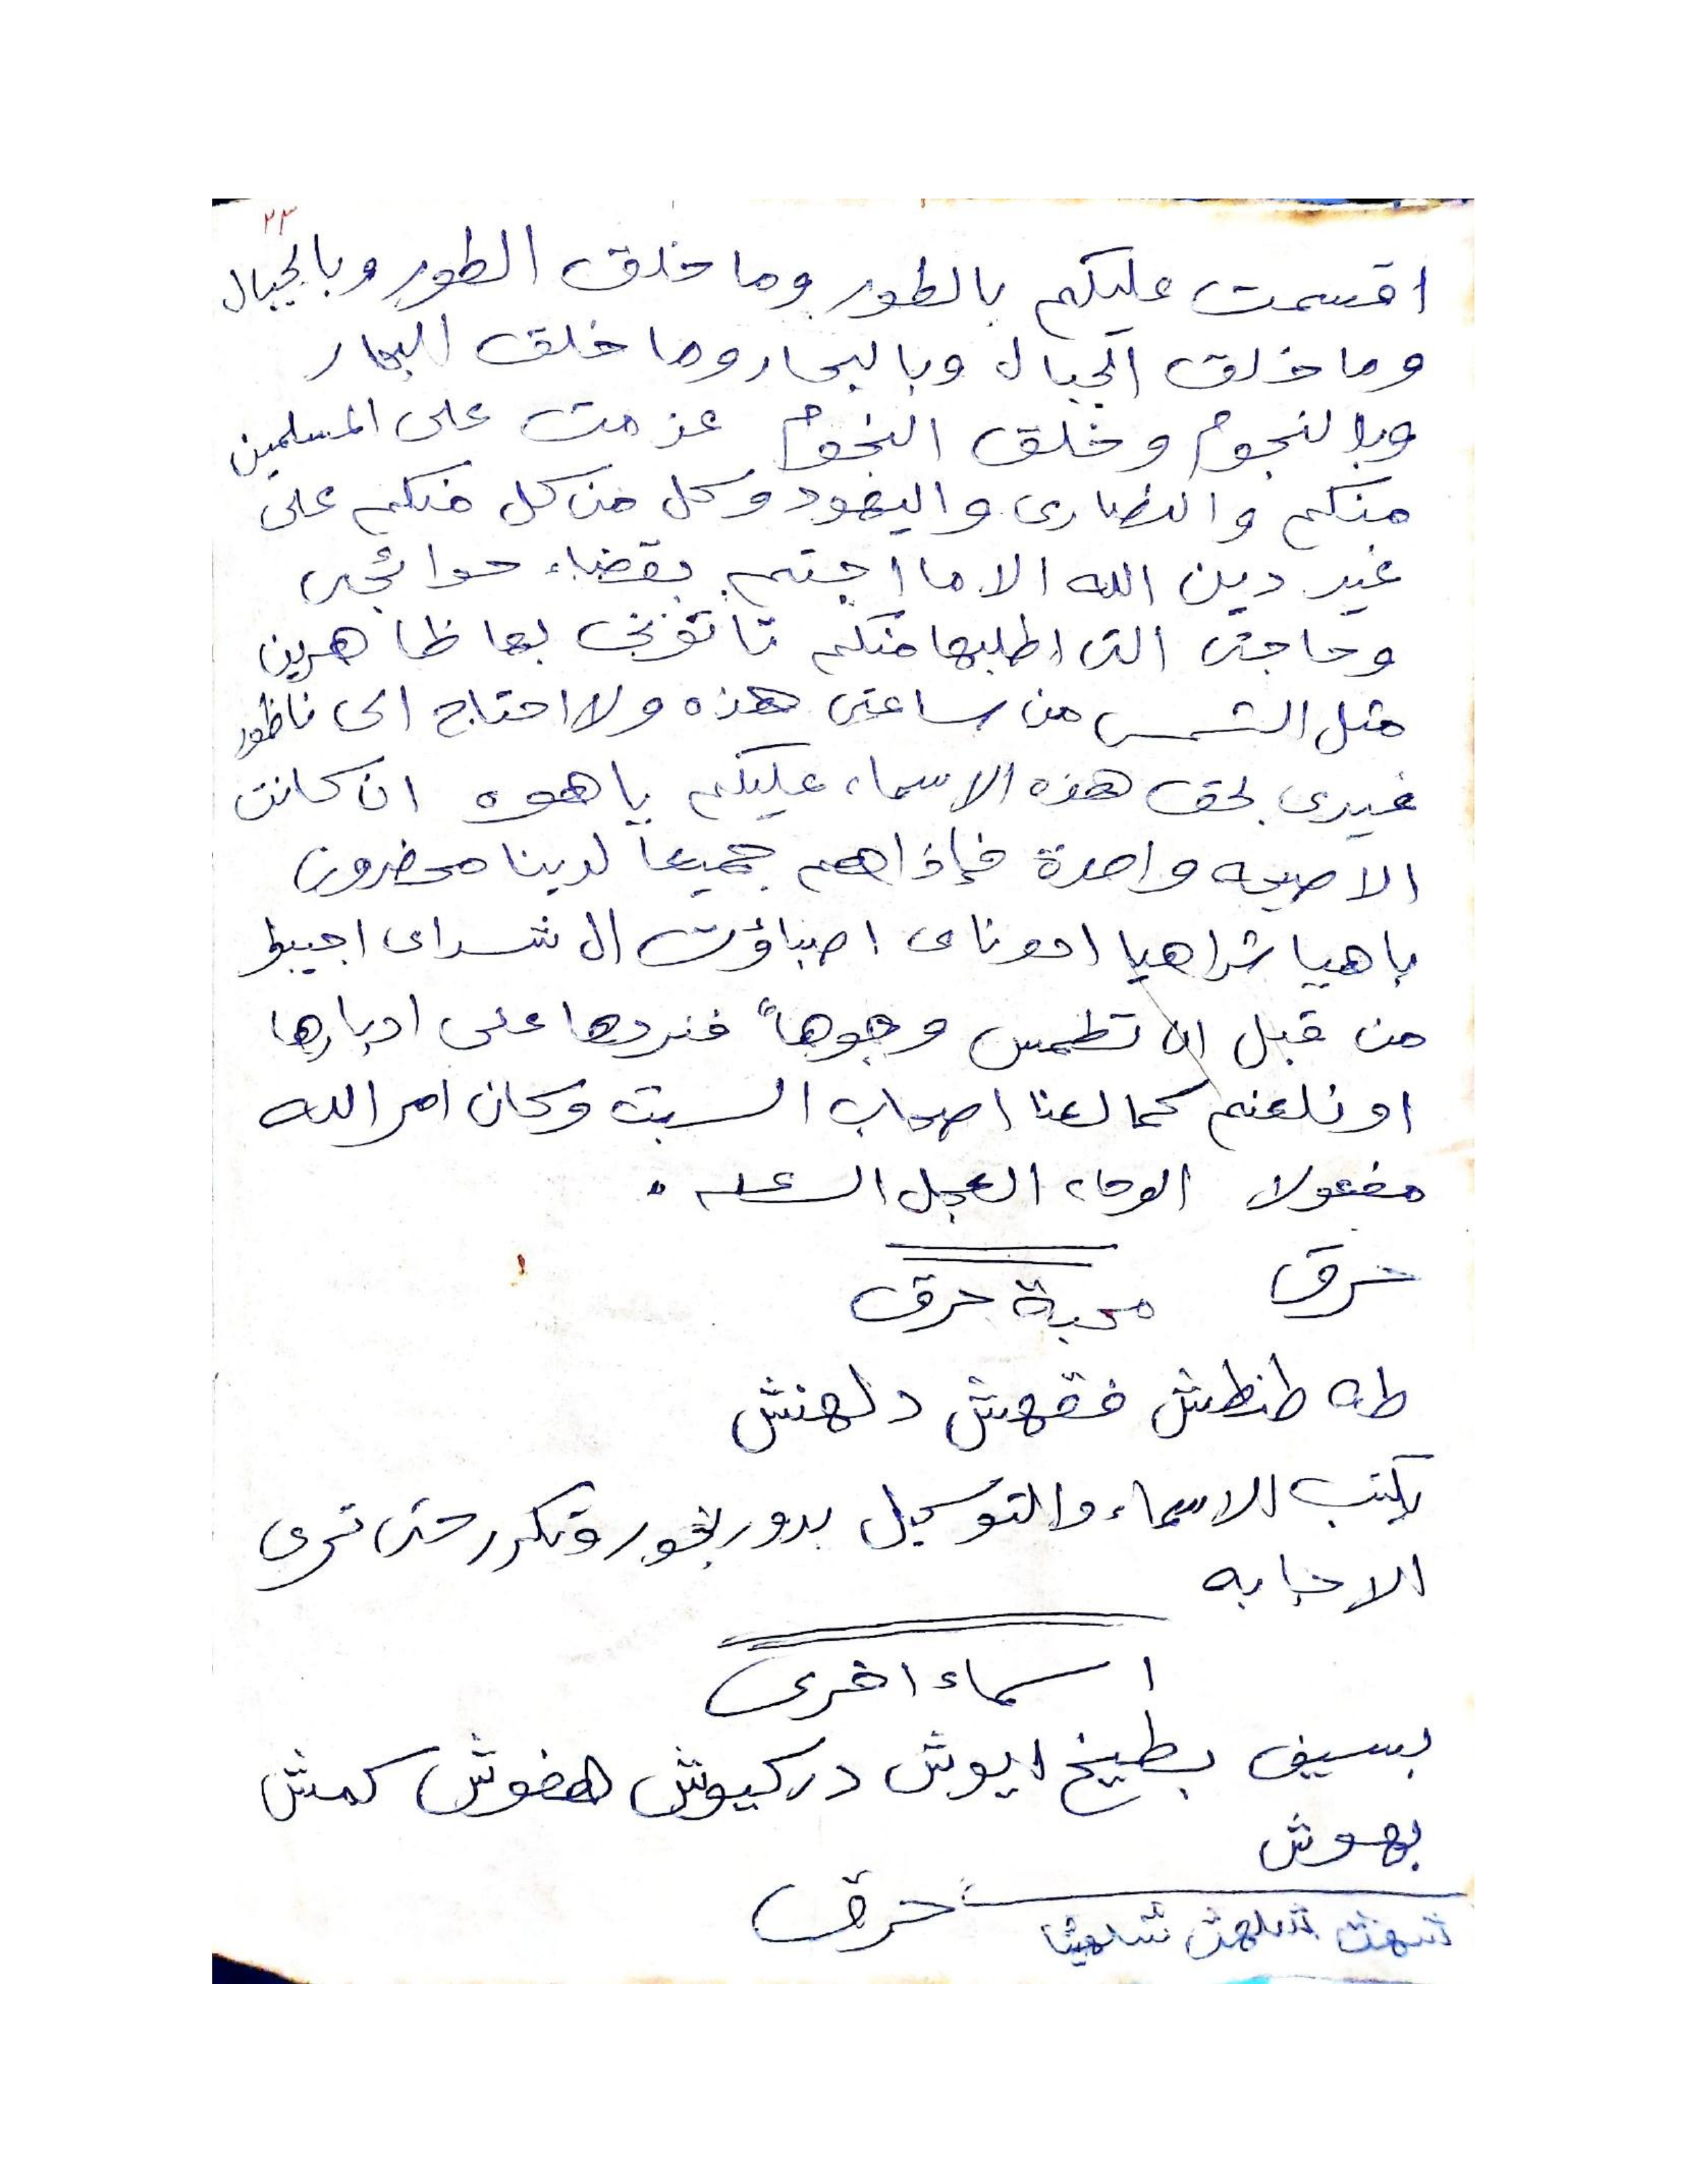 ٢٣
اقسمت عليكم بالطور وما خلق الطور وبالجبال
وما خلق الجبال وبالبحار وما خلق البحار
وبالنجوم وخلق النجوم عزمت على المسلمين
منكم والنصارى واليهود وكل من كل منكم على
غير دين الله الا ما اجبتم بقضاء حوائجى
وحاجتى التى اطلبها منكم بها ظاهرين
مثل الشمس من ساعتى هذه ولا احتاج الى ناظور
غيرى بحق هذه الاسماء عليكم ياهوه ان كانت
الا صيحه واحدة فإذا هم جميعاً لدينا محضرون
باهيا شراهيا ادوناى اصباؤت ال شداى اجيبو
من قبل ان تطمس وجوهاً فنردها على ادبارها
او نلعنهم كما لعنا اصحاب السبت وكان امر الله
مفعولا الوحاء العجل الساعه .
حرق
محبة حرق
طه طنطش فقهش دلهنش
يكتب الاسماء والتوكيل بدور بخور وتكرر حتى ترى
الاجابه
اسماء اخرى
بسيف بطيخ ايوش دركيوش هفوش كمش
بهوش
حرق